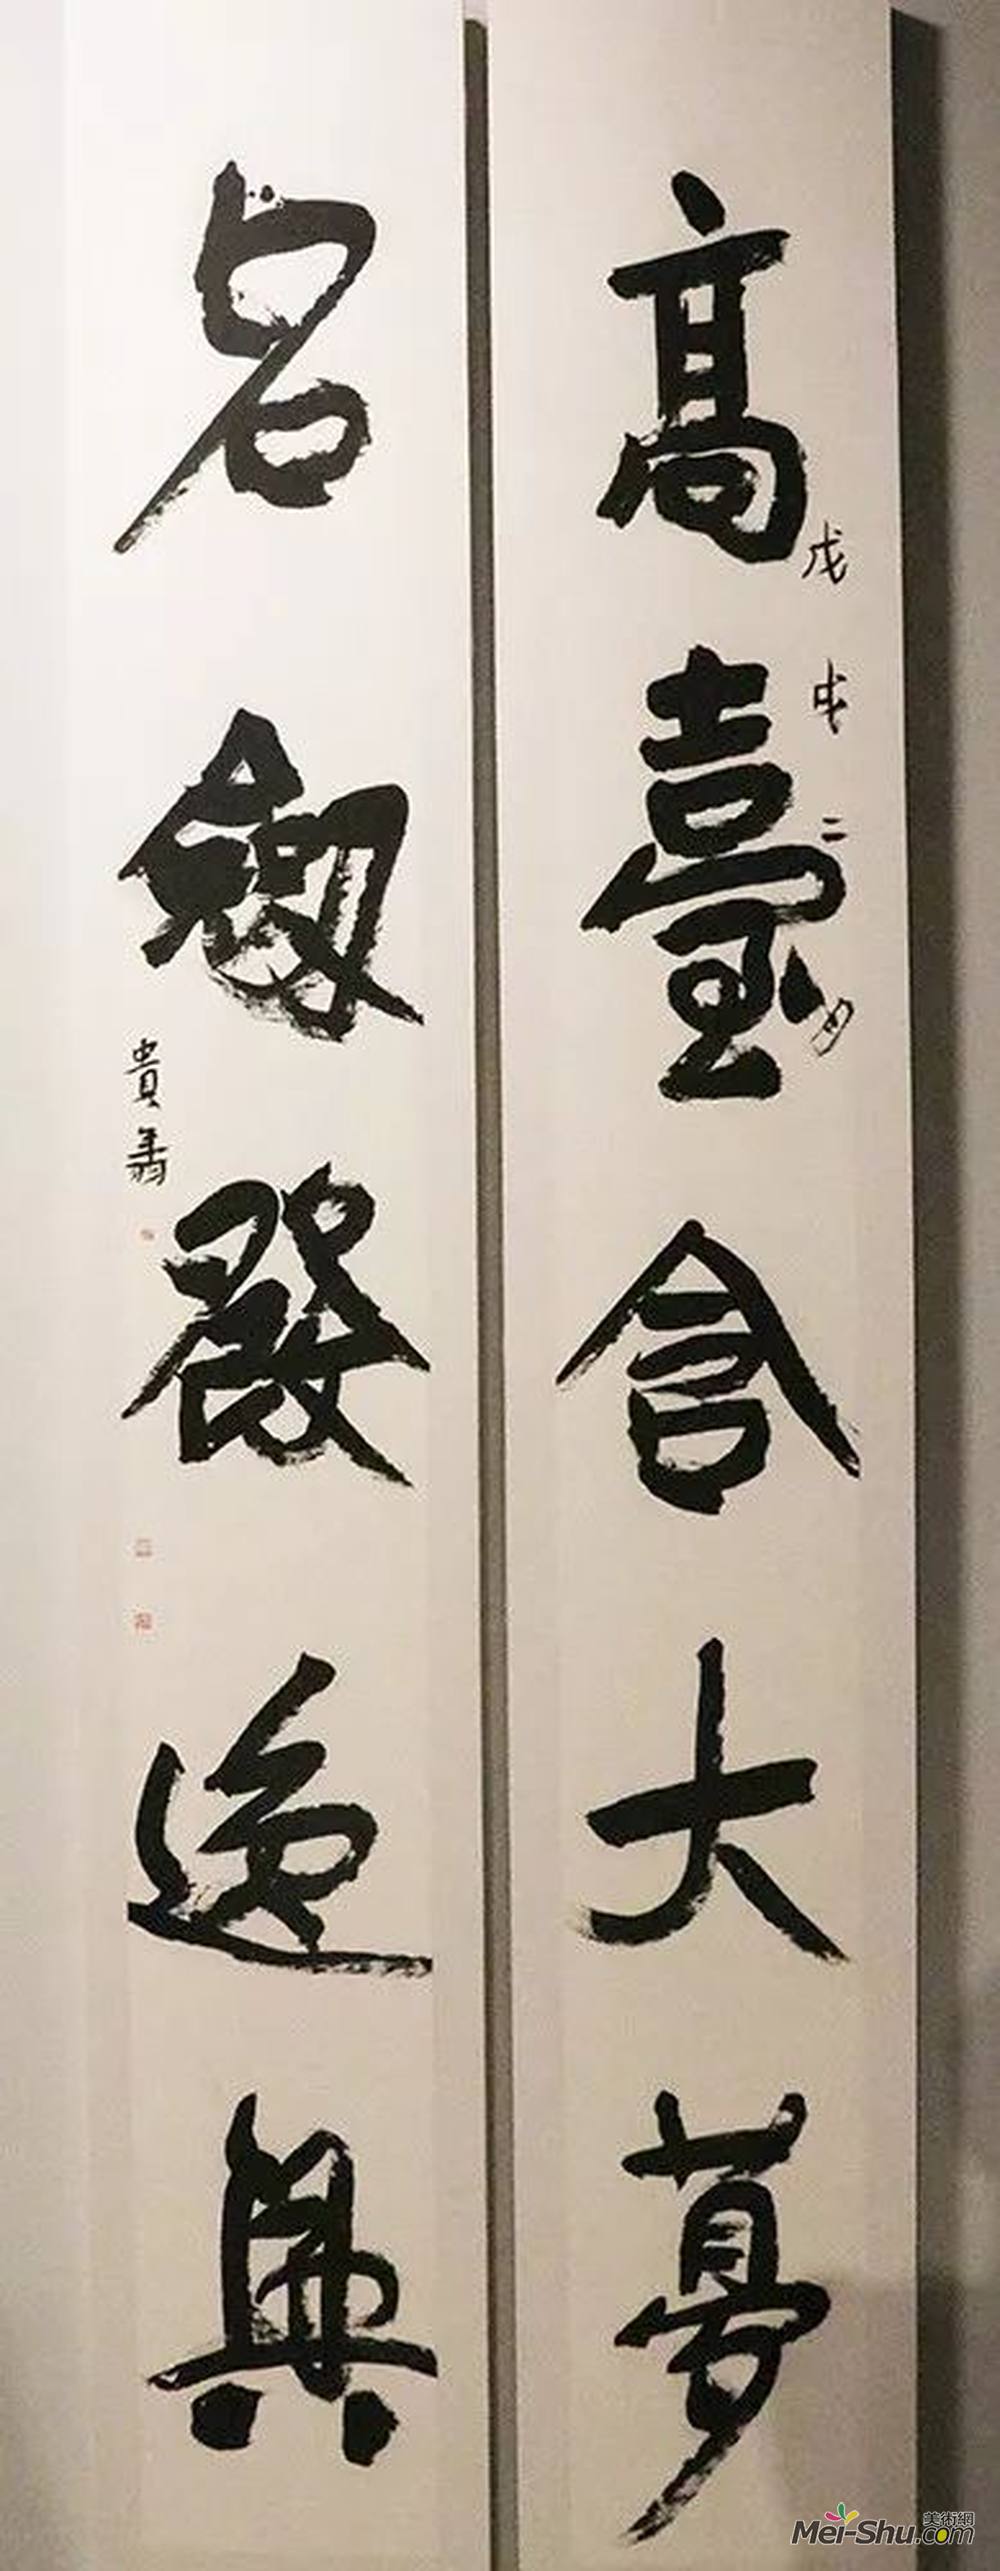 高臺含大夢
戊戌二月
名劒發逸興
貴
美術網
Mei-Shu.com